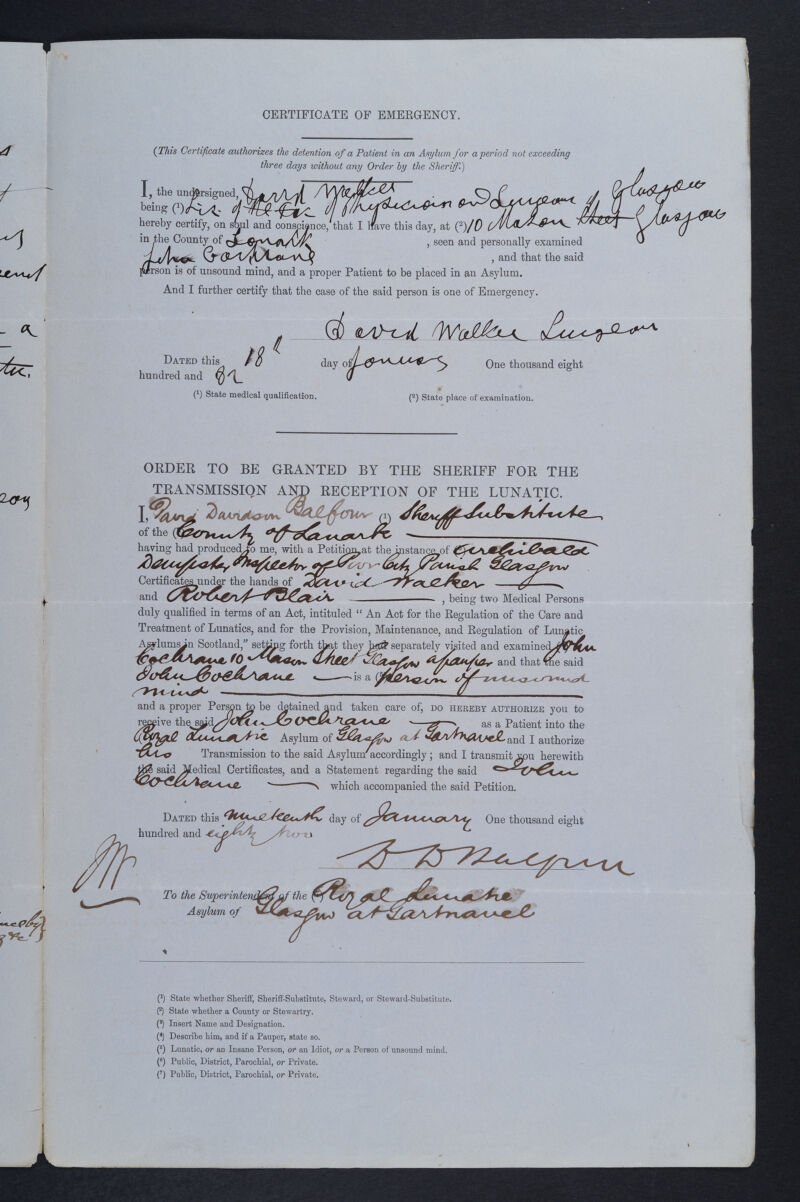 CERTIFICATE OF EMERGENCY.
(This Certificate authorizes the detention of a Patient in an Asylum for a period not exceeding
three days without any Order by the Sheriff.)
I, the undersigned, David Walker
being (1) Lic. of the Fac. of Physician and Surgeon of Glasgow
hereby certify, on soul and conscience, that I have this day, at (2) 10 Mason Street Glasgow
in the County of Lanark , seen and personally examined
John Cochrane , and that the said
person is of unsound mind, and a proper Patient to be placed in an Asylum.
And I further certify that the case of the said person is one of Emergency.
David Walker Surgeon
DATED this 18th day of January One thousand eight
hundred and 82
(1) State medical qualification. (2) State place of examination.
ORDER TO BE GRANTED BY THE SHERIFF FOR THE
TRANSMISSION AND RECEPTION OF THE LUNATIC.
I, David Davidson Balfour (1) Sheriff Substitute
of the (2) County of Lanark
having had produced to me, with a Petition at the instance of Archibald
Dempster Inspector of Poor City Parish Glasgow
Certificates under the hands of David Walker
and Robert Blair , being two Medical Persons
duly qualified in terms of an Act, intituled “An Act for the Regulation of the Care and
Treatment of Lunatics, and for the Provision, Maintenance, and Regulation of Lunatic
Asylums in Scotland,” setting forth that they had separately visited and examined John
Cochrane 10 Mason Street Glasgow a pauper and that the said
John Cochrane is a (5) person of unsound
mind
and a proper Person to be detained and taken care of, DO HEREBY AUTHORIZE you to
receive the said John Cochrane as a Patient into the
Royal Lunatic Asylum of Glasgow at Gartnavel and I authorize
his Transmission to the said Asylum accordingly; and I transmit you herewith
the said Medical Certificates, and a Statement regarding the said John
Cochrane which accompanied the said Petition.
DATED this nineteenth day of January One thousand eight
hundred and eighty two
D D Balfour
To the Superintendent of the (7) Royal Lunatic
Asylum of Glasgow at Gartnavel
(1) State whether Sheriff, Sheriff-Substitute, Steward, or Steward-Substitute.
(2) State whether a County or Stewartry.
(3) Insert Name and Designation.
(4) Describe him, and if a Pauper, state so.
(5) Lunatic, or an Insane Person, or an Idiot, or a Person of unsound mind.
(6) Public, District, Parochial, or Private.
(7) Public, District, Parochial, or Private.